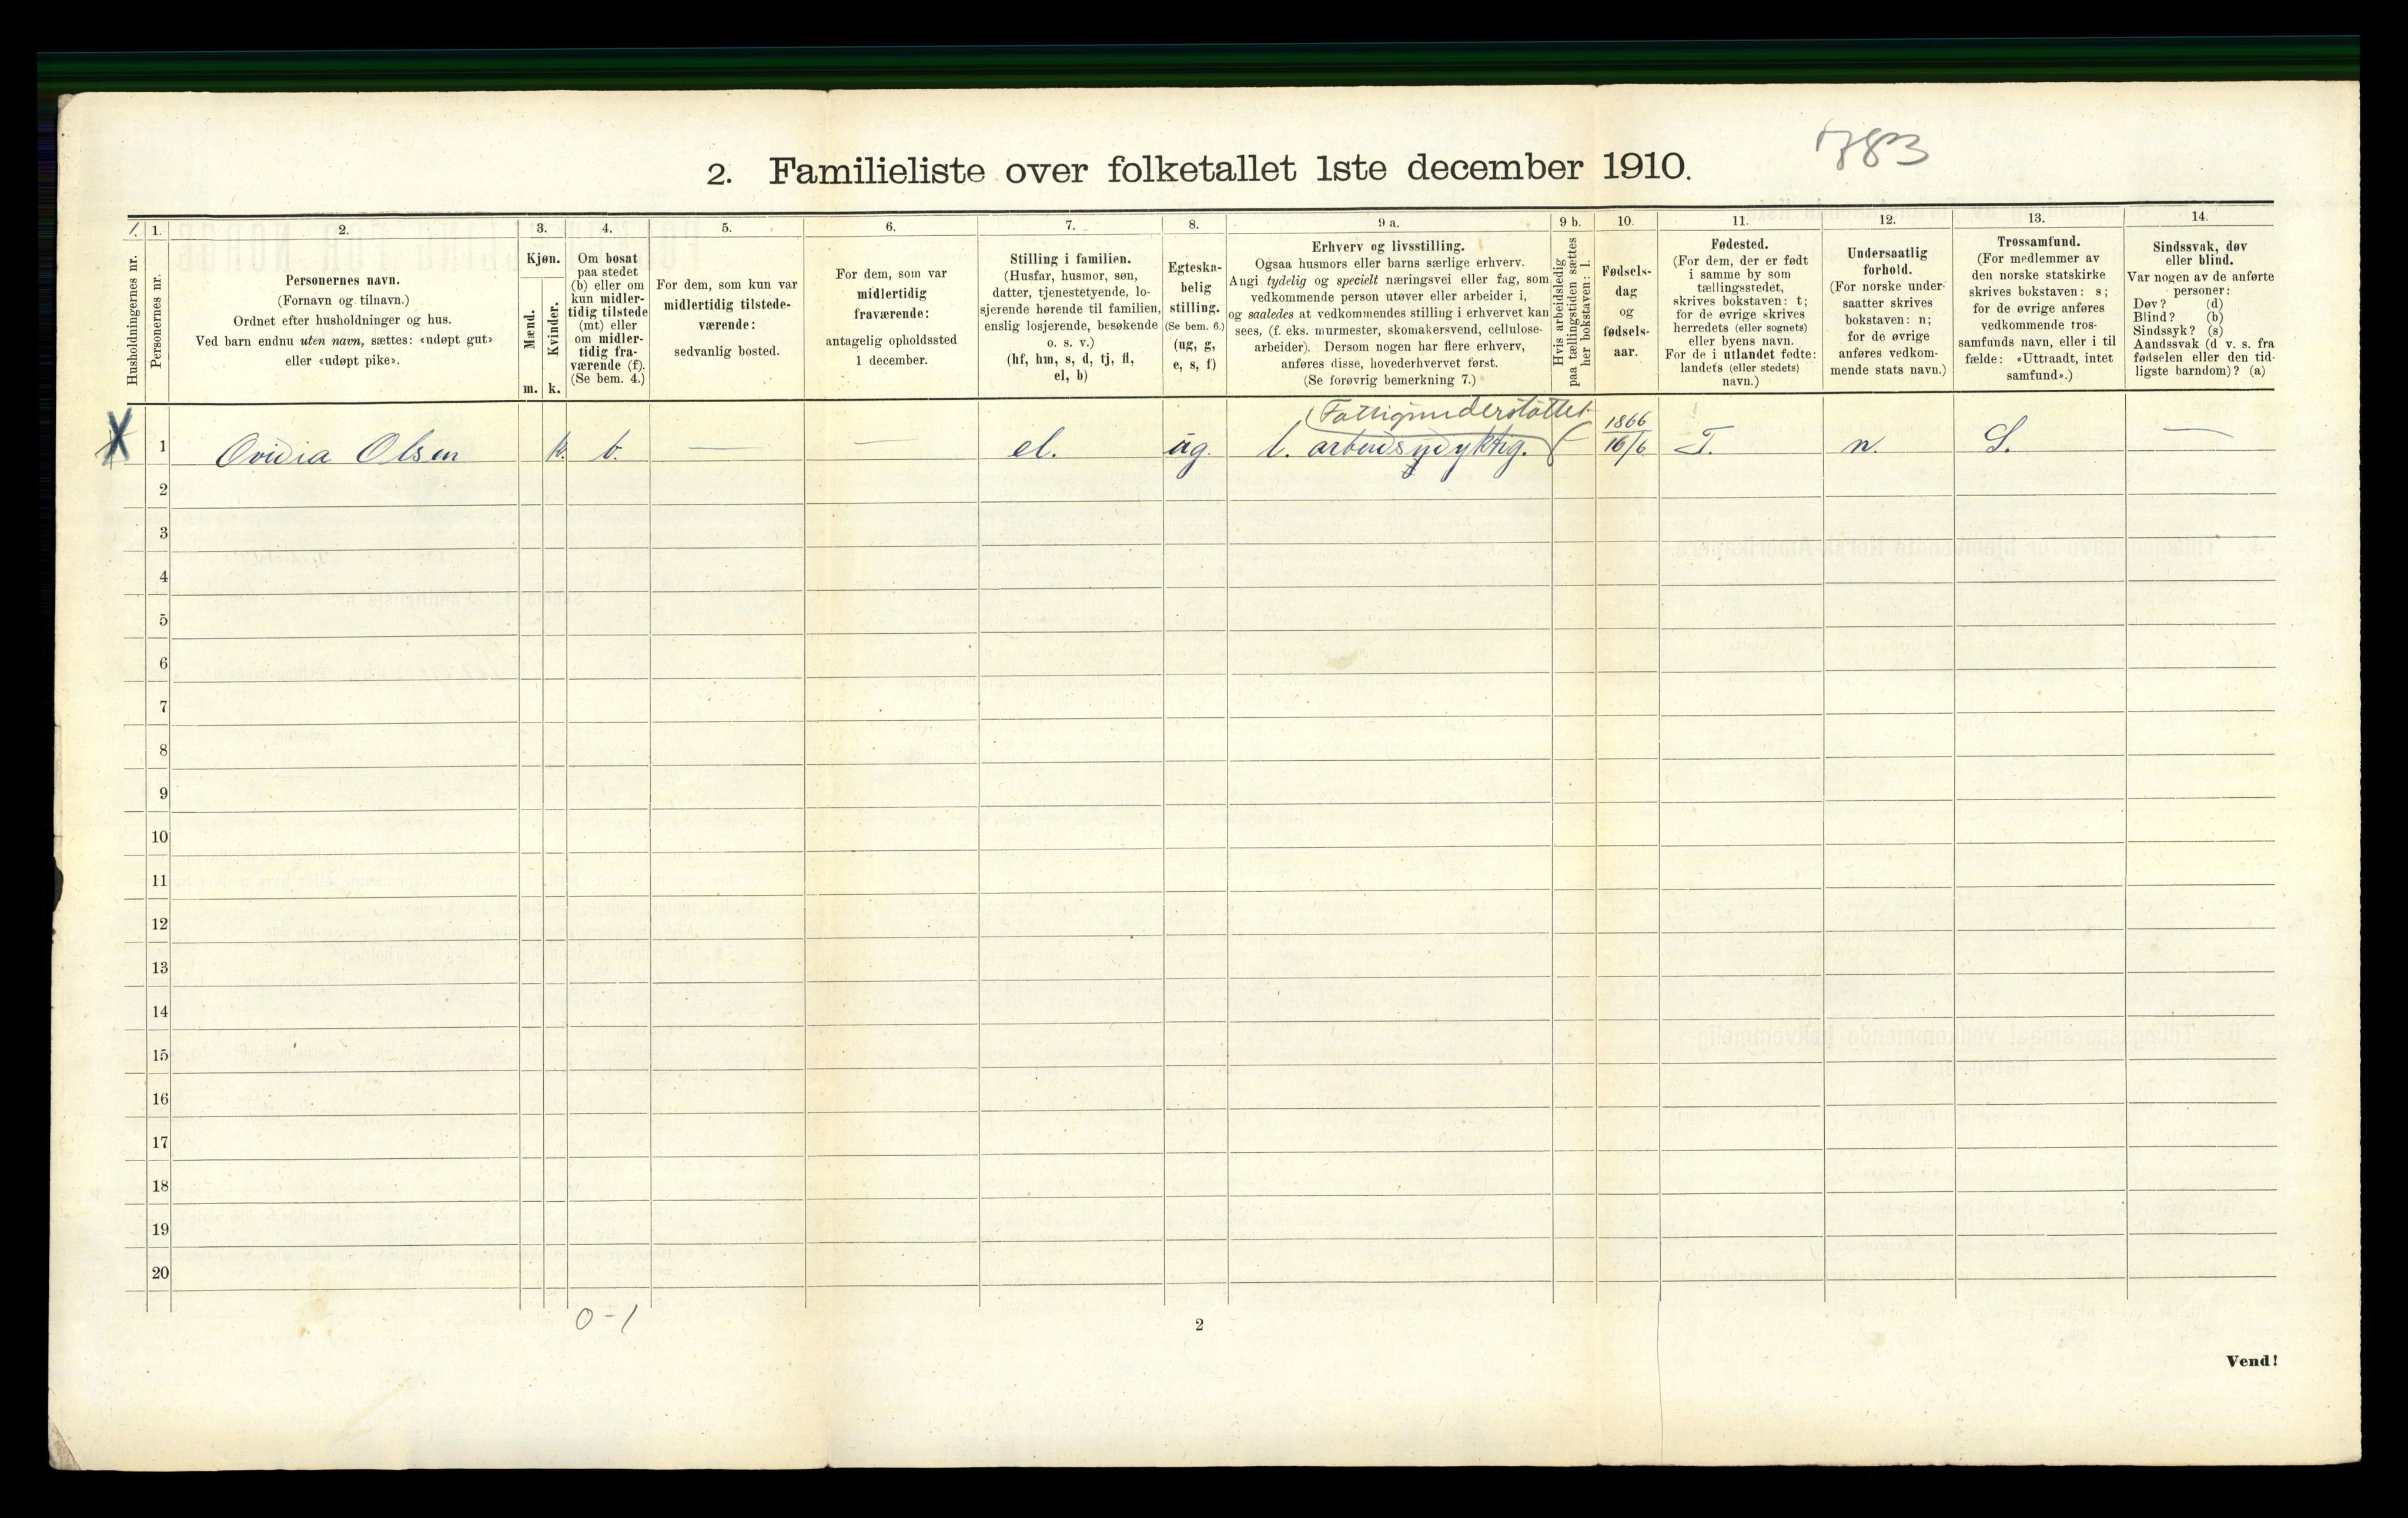 783
2. Familieliste over folketallet 1ste december 1910.
Husholdningernes nr.
1.
Personernes nr.
2.
Personernes navn.
(Fornavn og tilnavn.)
Ordnet efter husholdninger og hus.
Ved barn endnu uten navn, sættes: «udøpt gut»
eller «udøpt pike».
3.
Kjøn.
Mænd.
Kvinder.
m. k.
4.
Om bosat
paa stedet
(b) eller om
kun midler-
tidig tilstede
(mt) eller
om midler-
tidig fra-
værende (f).
(Se bem. 4.)
5.
For dem, som kun var
midlertidig tilstede-
værende:
sedvanlig bosted.
6.
For dem, som var
midlertidig
fraværende:
antagelig opholdssted
1 december.
7.
Stilling i familien.
(Husfar, husmor, søn,
datter, tjenestetyende, lo-
sjerende hørende til familien,
enslig losjerende, besøkende
o. s. v.)
(hf, hm, s, d, tj, fl,
el, b)
8.
Egteska-
belig
stilling.
(Se bem. 6.)
(ug, g,
e, s, f)
9 a.
Erhverv og livsstilling.
Ogsaa husmors eller barns særlige erhverv.
Angi tydelig og specielt næringsvei eller fag, som
vedkommende person utøver eller arbeider i,
og saaledes at vedkommendes stilling i erhvervet kan
sees, (f. eks. murmester, skomakersvend, cellulose-
arbeider). Dersom nogen har flere erhverv,
anføres disse, hovederhvervet først.
(Se forøvrig bemerkning 7.)
9 b.
Hvis arbeidsledig
paa tællingstiden sættes
her bokstaven: l.
10.
Fødsels-
dag
og
fødsels-
aar.
11.
Fødested.
(For dem, der er født
i samme by som
tællingsstedet,
skrives bokstaven: t;
for de øvrige skrives
herredets (eller sognets)
eller byens navn.
For de i utlandet fødte:
landets (eller stedets)
navn.)
12.
Undersaatlig
forhold.
(For norske under-
saatter skrives
bokstaven: n;
for de øvrige
anføres vedkom-
mende stats navn.)
13.
Trossamfund.
(For medlemmer av
den norske statskirke
skrives bokstaven: s;
for de øvrige anføres
vedkommende tros-
samfunds navn, eller i til
fælde: «Uttraadt, intet
samfund».)
14.
Sindssvak, døv
eller blind.
Var nogen av de anførte
personer:
Døv? (d)
Blind? (b)
Sindssyk? (s)
Aandssvak (d v. s. fra
fødselen eller den tid-
ligste barndom)? (a)
Fattigunderstøttet
1866
1 Ovidia Olsen k. b. — — el. ug. l. arbeidsudyktig. 16/6 T. n. S. —
2
3
4
5
6
7
8
9
10
11
12
13
14
15
16
17
18
19
20
0-1
2
Vend!